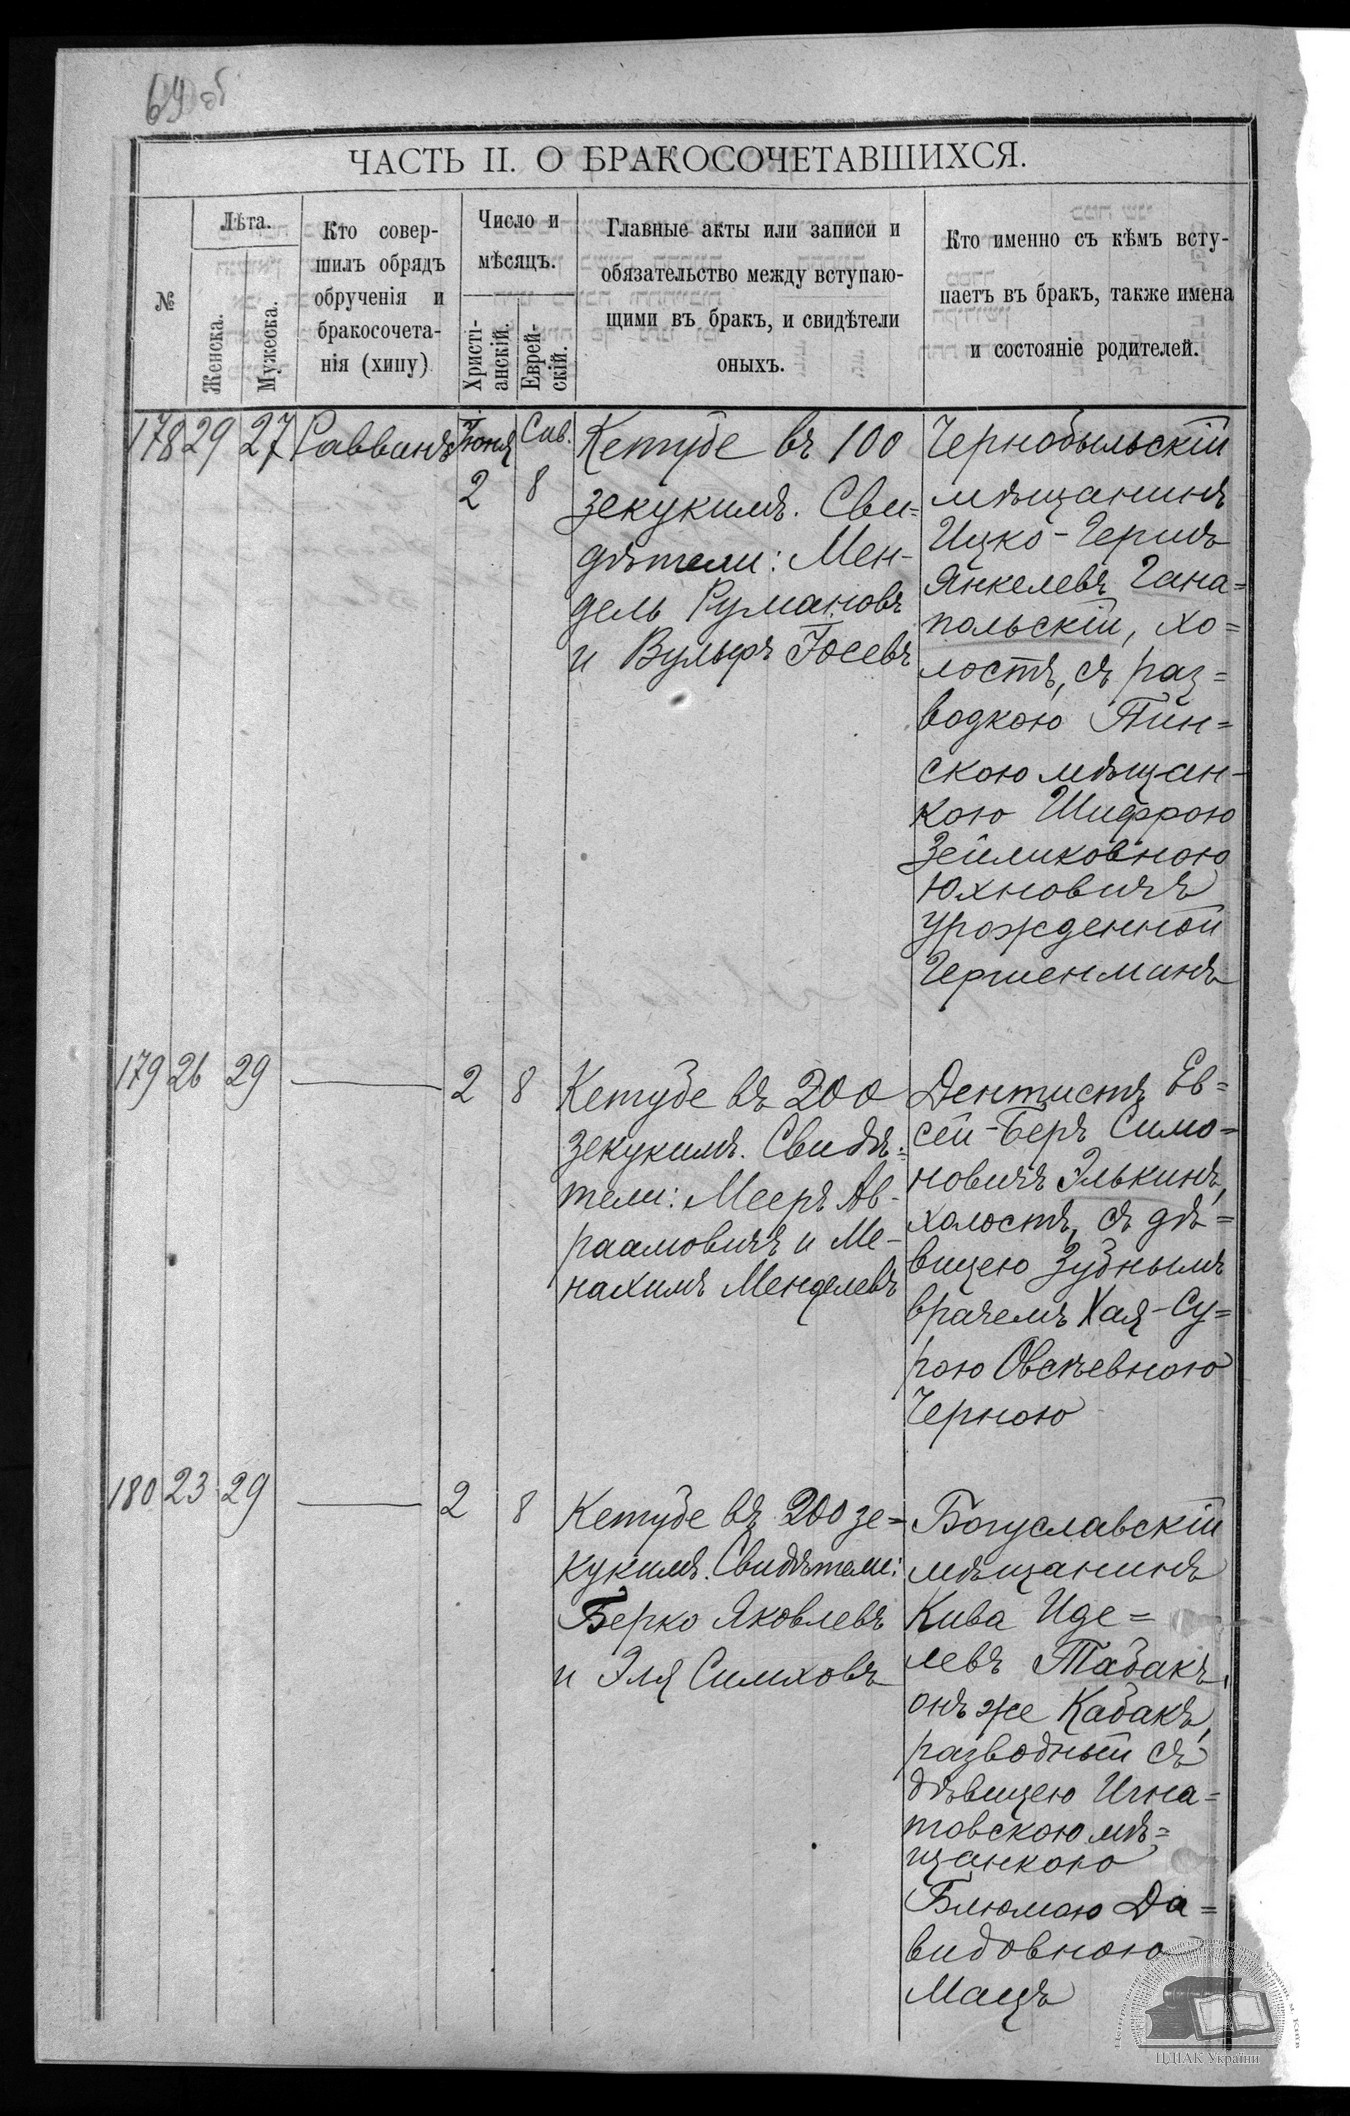 69 об
ЧАСТЬ II. О БРАКОСОЧЕТАВШИХСЯ.
№
Лѣта.
Женска.
Мужеска.
Кто совер-
шилъ обрядъ
обрученія и
бракосочета-
нія (хипу)
Число и
мѣсяцъ.
Христі-
анскій.
Еврей-
скій.
Главные акты или записи и
обязательство между вступаю-
щими въ бракъ, и свидѣтели
оныхъ.
Кто именно съ кѣмъ всту-
паетъ въ бракъ, также имена
и состояніе родителей.
178 29 27 Раввинъ Іюня 2 Сив. 8
Кетубе въ 100
зекукимъ. Сви=
дѣтели: Мен-
дель Румановъ
и Вульфъ Іосевъ
Чернобыльскій
мѣщанинъ
Ицко-Гершъ
Янкелевъ Гана=
польскій, хо=
лостъ, съ раз=
водкою Пин=
скою мѣщан-
кою Шифрою
Зейликовною
Юхновичъ
урожденной
Гершенманъ
179 26 29 — 2 8
Кетубе въ 200
зекукимъ. Свидѣ=
тели: Мееръ Ав-
раамовичъ и Ме-
нахимъ Менделевъ
Дентистъ Ев=
сей-Беръ Симо=
новичъ Элькинъ,
холостъ, съ дѣ=
вицею Зубнымъ
врачемъ Хая-Су=
рою Овсѣевною
Черною
180 23 29 — 2 8
Кетубе въ 200 зе=
кукимъ. Свидѣтели:
Берко Яковлевъ
и Эля Симховъ
Богуславскій
мѣщанинъ
Кива Иде=
левъ Табакъ,
онъ же Кабакъ,
разводный съ
дѣвицею Игна=
товскою мѣ=
щанкою
Блюмою Да=
видовною
Мацъ
ЦДІАК України